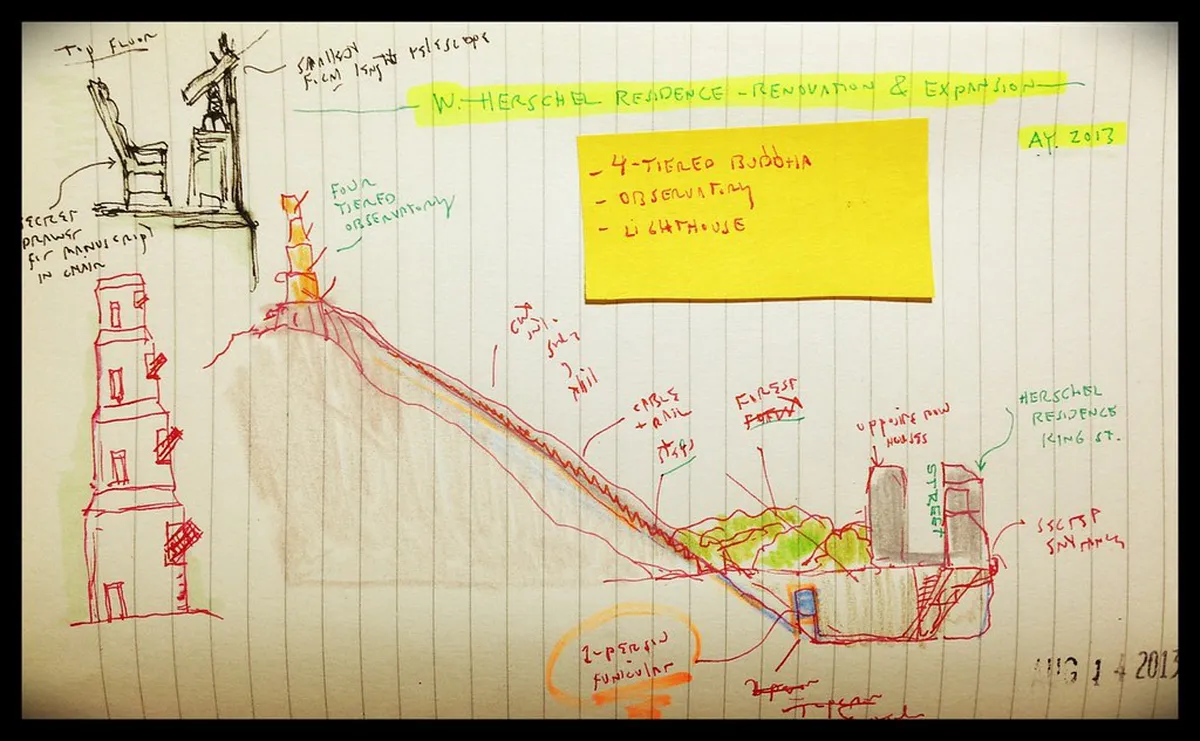 TOP FLOOR
SMALLER
FOCAL length TELESCOPE
W. HERSCHEL RESIDENCE - RENOVATION & EXPANSION
AY. 2013
- 4-TIERED BUDDHA
- OBSERVATORY
- LIGHTHOUSE
FOUR
TIERED
OBSERVATORY
SECRET
DRAWER
for MANUSCRIPT
IN CHAIR
CABLE
+ RAIL
STEPS
FOREST
opposite row
HOUSES
HERSCHEL
RESIDENCE
KING ST.
STREET
SECRET
ENTRANCE
2-person
FUNICULAR
AUG 14 2013